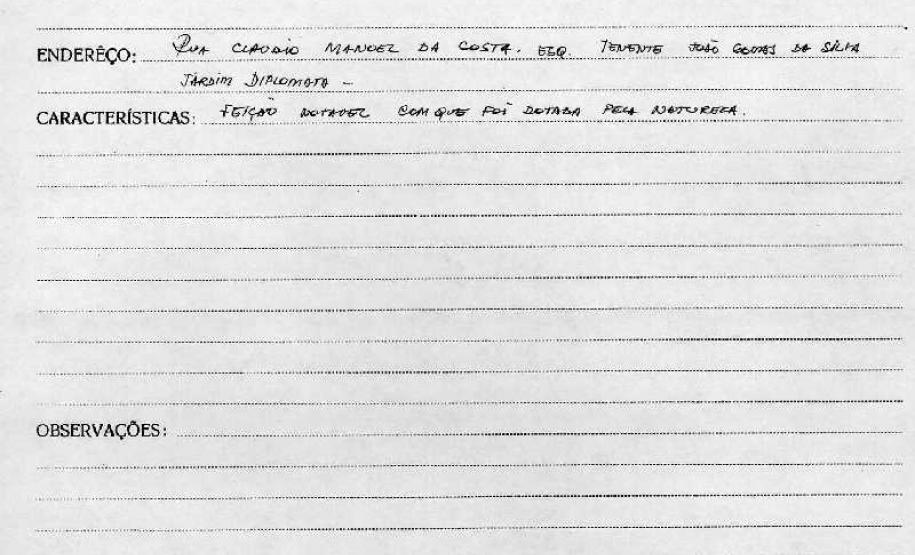 ENDERÊÇO: RUA CLAUDIO MANOEL DA COSTA. ESQ. TENENTE JOÃO GOMES DA SILVA
JARDIM DIPLOMATA -
CARACTERÍSTICAS: FEIÇÃO NOTAVEL COM QUE FOI DOTADA PELA NATUREZA.
OBSERVAÇÕES: